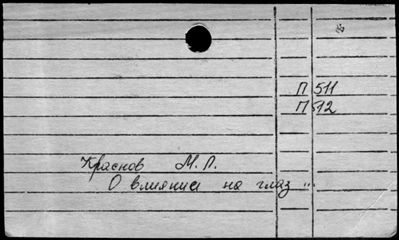 П 511
П 512
Краснов М.Л.
О влянии на глаз ...